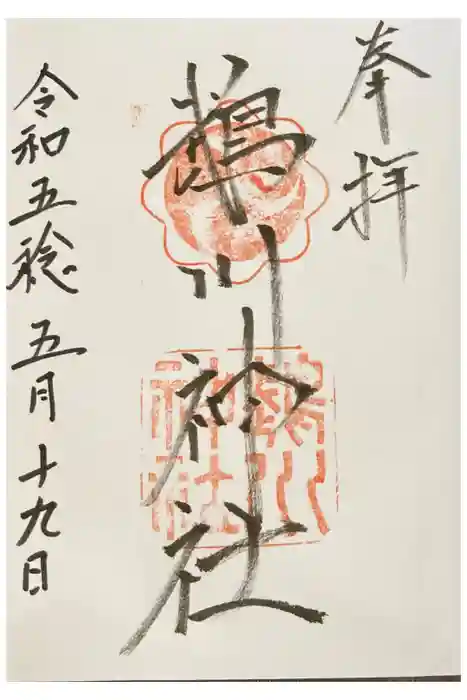 奉拝
鵜川神社
鵜川
神社
令和五稔五月十九日